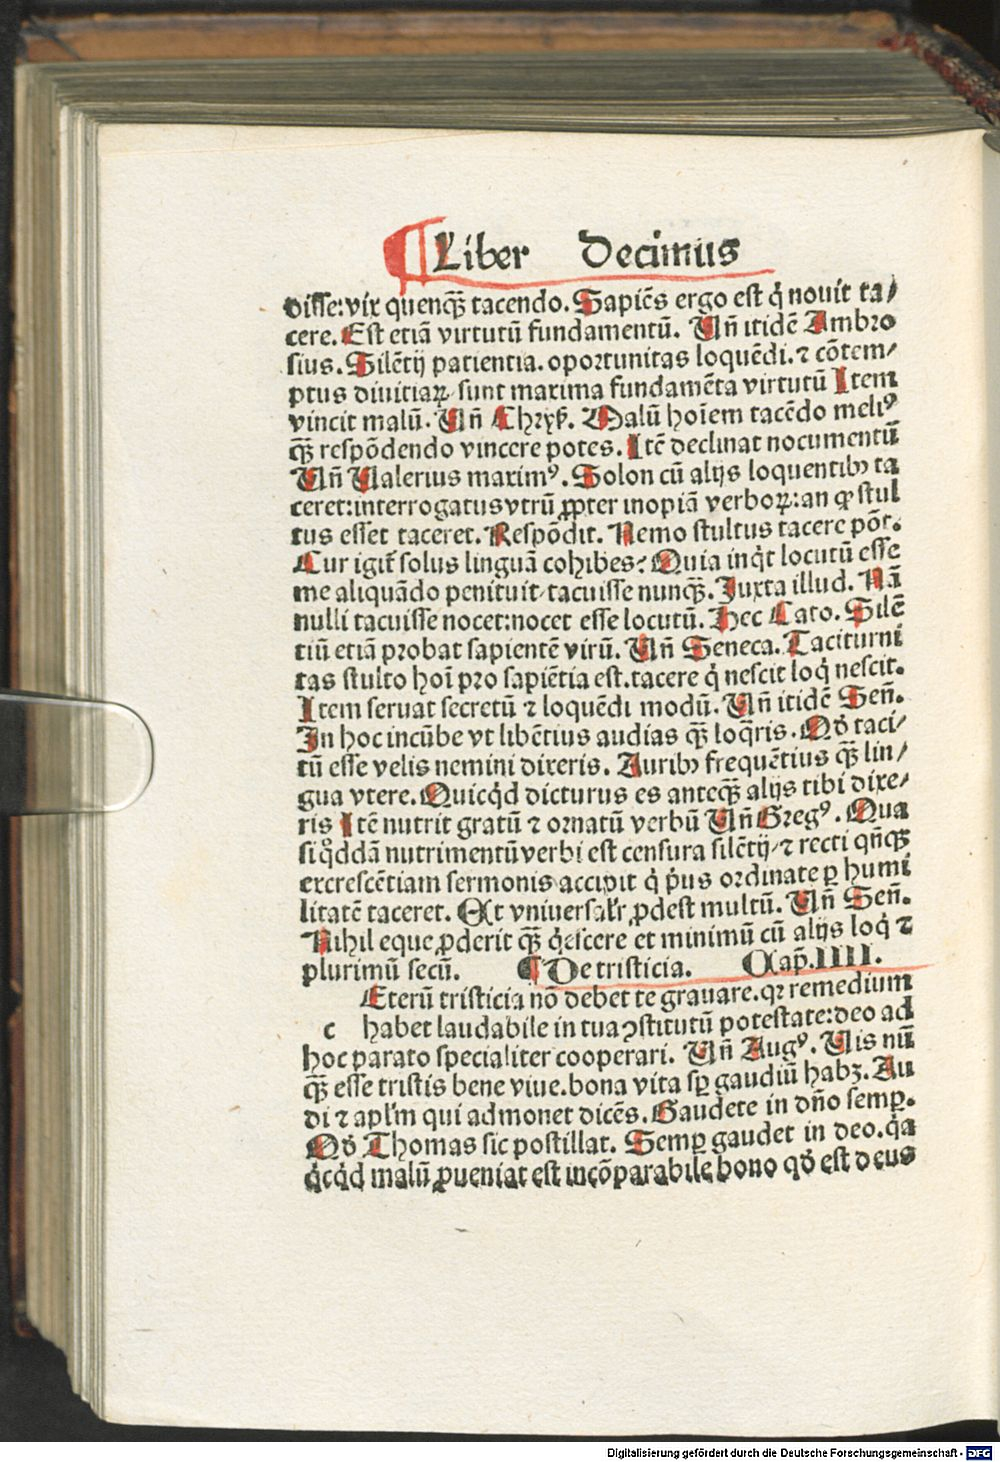 ¶ Liber Decimus
disse: vix quenq̃ tacendo. Sapiẽs ergo est q̇ nouit ta/
cere. Est etiã virtutũ fundamentũ. Vñ itidẽ Ambro
sius. Silẽtij patientia. oportunitas loquẽdi. ⁊ cõtem/
ptus diuitiaꝝ sunt maxima fundamẽta virtutũ Item
vincit malũ. Vñ Chryẜ. Malũ hoĩem tacẽdo meliꝰ
q̃ respõdendo vincere potes. Itẽ declinat nocumentũ
Vñ Valerius maximꝰ. Solon cũ alijs loquentibꝫ ta
ceret: interrogatus vtrũ ꝓpter inopiã verboꝝ: an ꝙ stul
tus esset taceret. Respõdit. Nemo stultus tacere põt.
Cur igit᷑ solus linguã cohibes? Quia inq̇t locutũ esse
me aliquãdo penituit/ tacuisse nunq̃. Iuxta illud. Nã
nulli tacuisse nocet: nocet esse locutũ. Hec Cato. Silẽ
tiũ etiã probat sapientẽ virũ. Vñ Seneca. Taciturni
tas stulto hoĩ pro sapiẽtia est. tacere q̇ nescit loq̇ nescit.
Item seruat secretũ ⁊ loquẽdi modũ. Vñ itidẽ Señ.
In hoc incũbe vt libẽtius audias q̃ loq̃ris. Qḋ taci/
tũ esse velis nemini dixeris. Auribꝫ frequẽtius q̃ lin/
gua vtere. Quicq̇d dicturus es anteq̃ alijs tibi dixe/
ris Itẽ nutrit gratũ ⁊ ornatũ verbũ Vñ Gregꝰ. Qua
si q̊ddã nutrimentũ verbi est censura silẽtij/ ⁊ recti qñq̃
excrescẽtiam sermonis accipit q̇ p̃us ordinate ꝑ humi
litatẽ taceret. Et vniuersalr̃ ꝓdest multũ. Vñ Señ.
Nihil eque ꝓderit q̃ q̇escere et minimũ cũ alijs loq̇ ⁊
plurimũ secũ. ¶ De tristicia. Cap̃. IIII.
Eterũ tristicia nõ debet te grauare. qꝛ remedium
c habet laudabile in tua ꝯstitutũ potestate: deo ad
hoc parato specialiter cooperari. Vñ Augꝰ. Vis nũ
q̃ esse tristis bene viue. bona vita sꝑ gaudiũ habꝫ. Au
di ⁊ apłm qui admonet dicẽs. Gaudete in dño semꝑ.
Qḋ Thomas sic postillat. Semꝑ gaudet in deo. q̇a
q̇cq̇d malũ ꝓueniat est incõparabile bono qḋ est deus
Digitalisierung gefördert durch die Deutsche Forschungsgemeinschaft - DFG